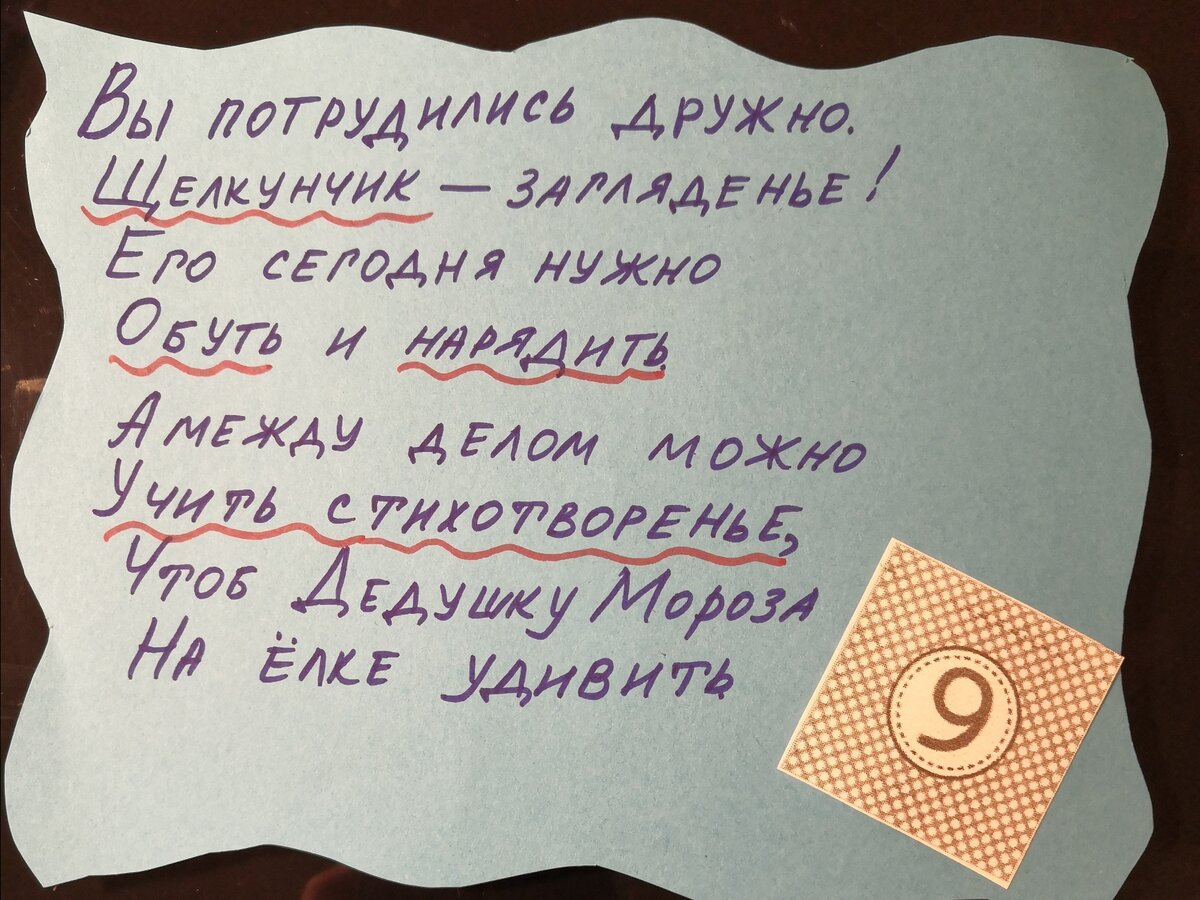 Вы потрудились дружно.
Щелкунчик – загляденье!
Его сегодня нужно
Обуть и нарядить.
А между делом можно
Учить стихотворенье,
Чтоб Дедушку Мороза
На ёлке удивить
9